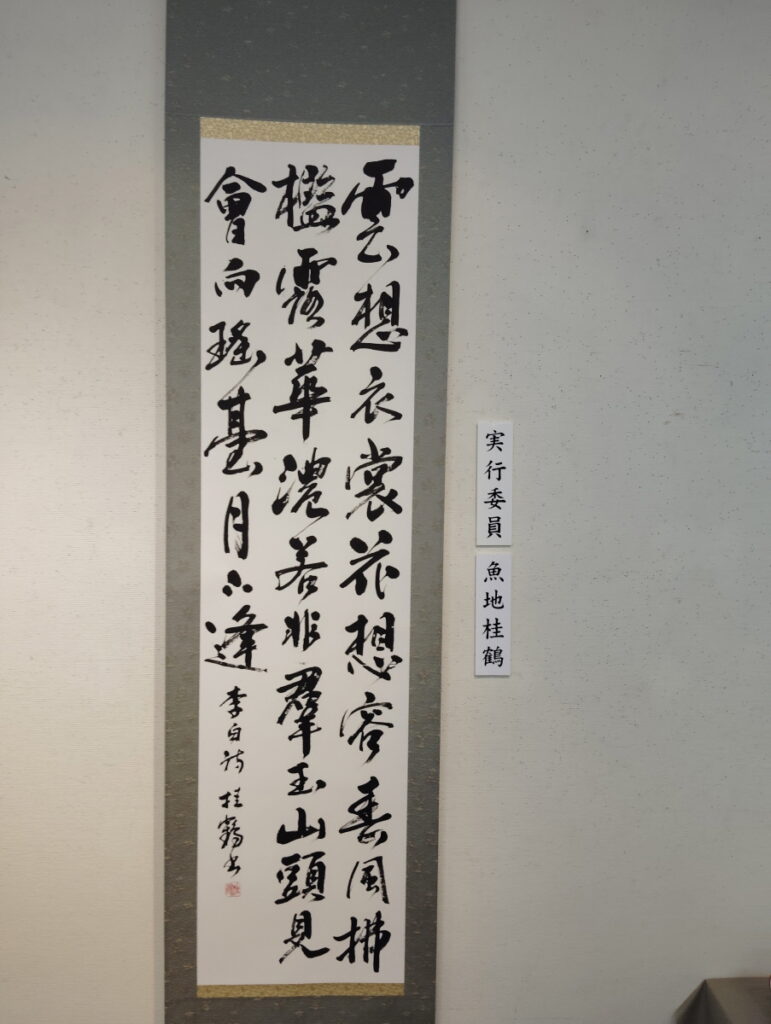 雲想衣裳花想容春風拂
檻露華濃若非羣玉山頭見
會向瑤臺月下逢 李白詩 桂鶴書
実行委員
魚地桂鶴